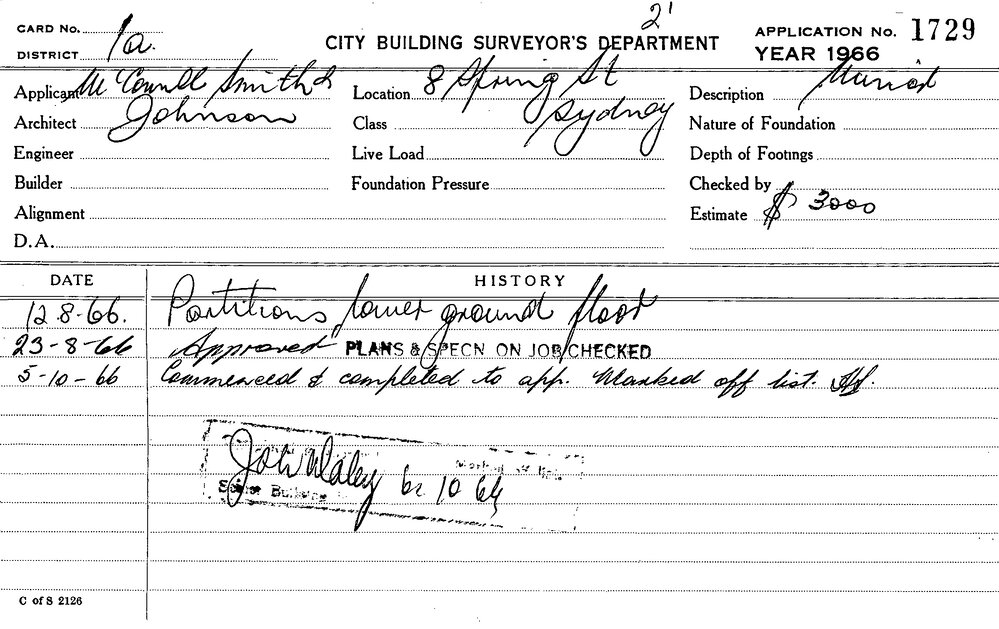 2'
CARD No. CITY BUILDING SURVEYOR'S DEPARTMENT APPLICATION No. 1729
DISTRICT 1a. YEAR 1966
Applicant McConnell Smith & Location 8 Spring St Description
Architect Johnson Class Sydney Nature of Foundation
Engineer Live Load Depth of Footings
Builder Foundation Pressure Checked by
Alignment Estimate $ 3000
D.A.
DATE HISTORY
12.8-66. Partitions lower ground floor
23-8-66 Approved PLANS & SPECN ON JOB CHECKED
5-10-66 Commenced & completed to app. Marked off list.
Senior Building
6. 10 66
C of S 2126